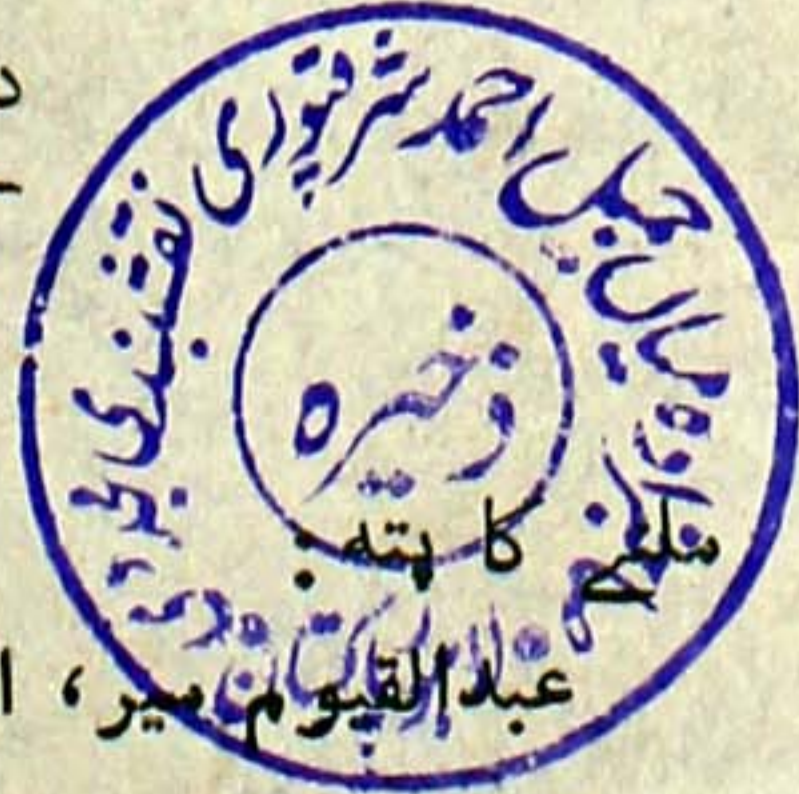 صاحبزادہ میاں جمیل احمد شرقپوری نقشبندی مجددی
ذخیرہ
ملنے کا پتہ :
عبدالقیوم میر، ا